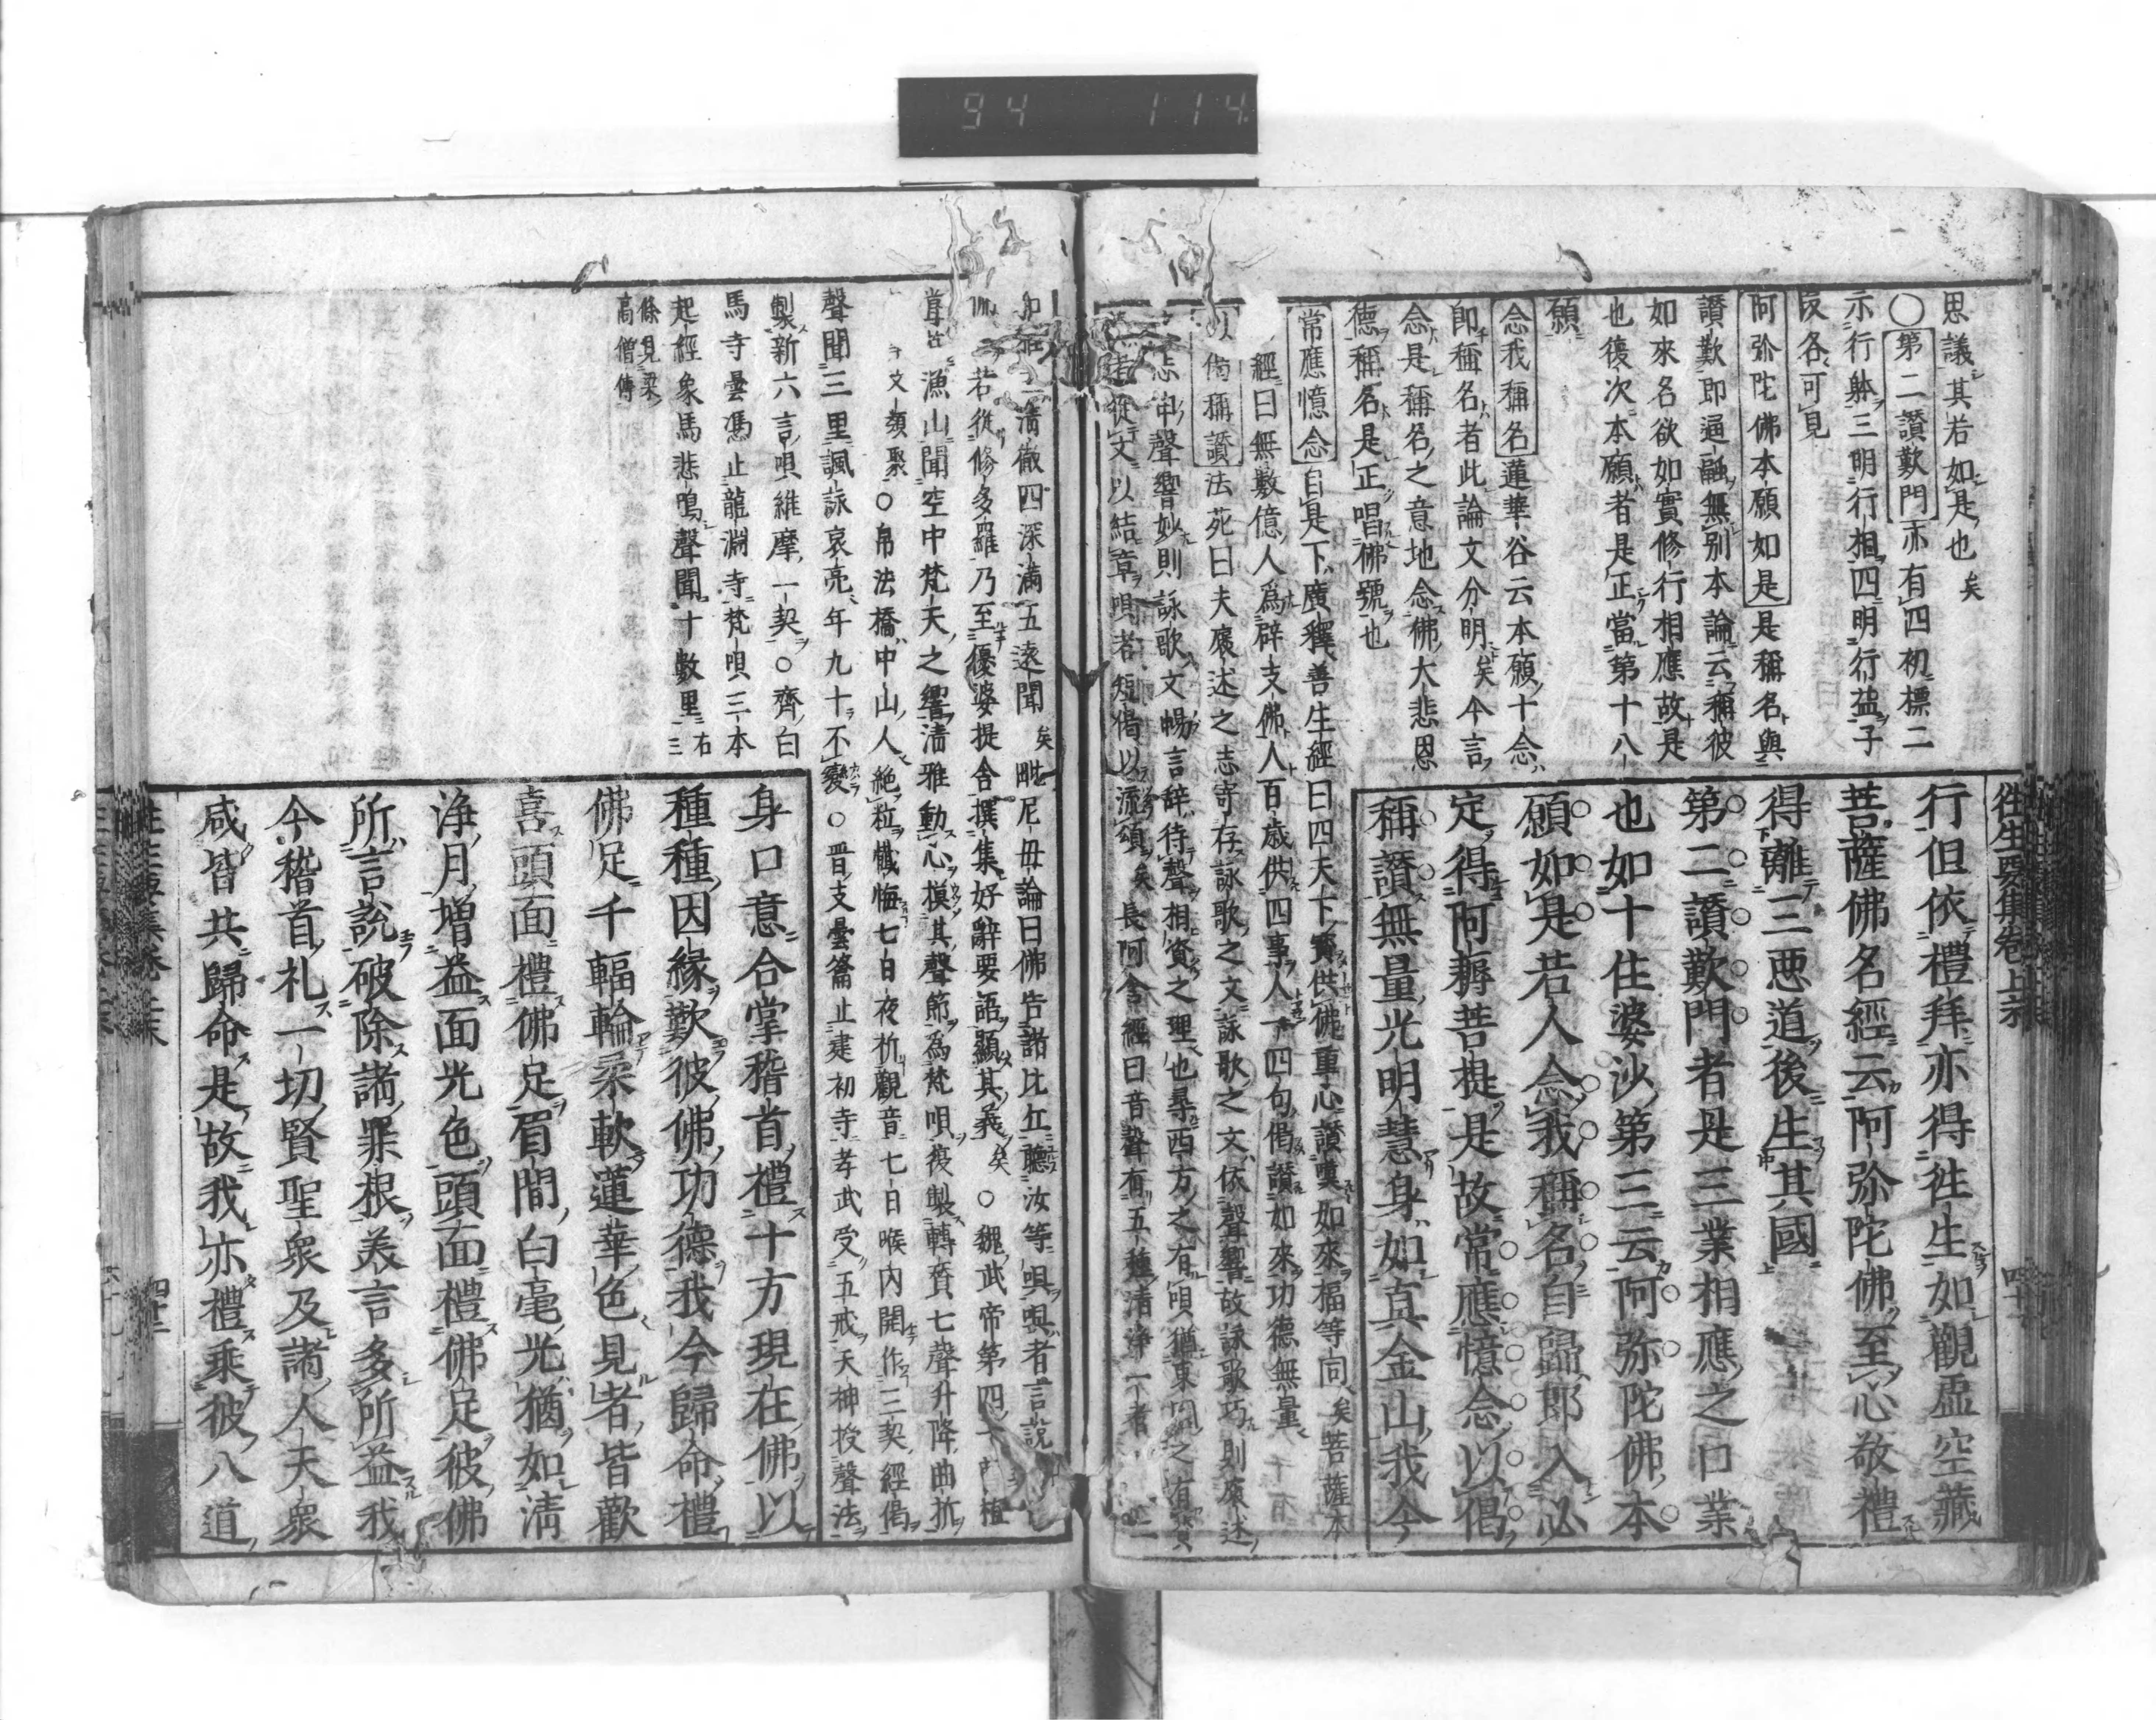 94 114
往生要集卷上末
行但依禮拜亦得徃生如觀虛空藏
菩薩佛名經云阿弥陀佛至心敬禮
得離三悪道後生其國
第二讃歎門者是三業相應之口業
也如十住婆沙第三云阿弥陀佛本
願如是若人念我稱名自歸即入必
定得阿耨菩提是故常應憶念以偈
稱讃無量光明慧身如真金山我今
思議其若如是也矣
〇第二讃歎門亦有四初標二
示行躰三明行相四明行益子
叚各可見
阿弥陀佛本願如是是稱名與
讃歎即通融無別本論云稱彼
如來名欲如實修行相應故是
也復次本願者是正當第十八
願
念我稱名蓮華谷云本願十念
即稱名者此論文分明矣今言
念是稱名之意地念佛大悲恩
德稱名是正唱佛號也
常應憶念自是下廣釋善生經曰四天下寶供佛重心讃嘆如來福等同矣菩薩本
經曰無數億人爲辟支佛人百歳供四事人四句偈讃如來功德無量
以偈稱讃法苑曰夫褒述之志寄存詠歌之文詠歌之文依聲響故詠歌巧則褒述
申聲響妙則詠歌文暢言辭待聲相資之理也尋西方之有唄猶東國之有賛
者從文以結章唄者短偈以流頌矣長阿含經曰音聲有五種清淨一者
清徹四深満五遠聞矣毗尼母論曰佛告諸比丘聽汝等唄唄者言說
若從修多羅乃至優婆提舍撰集好辭要語顯其義矣〇魏武帝第四
漁山聞空中梵天之響清雅動心模其聲節為梵唄復製轉賛七聲升降曲折
文類聚〇帛法橋中山人絶粒懺悔七日夜祈觀音七日喉内開作三契經偈
聲聞三里諷詠哀亮年九十不變〇晋支曇籥止建初寺孝武受五戒天神授聲法
製新六言唄維摩一契〇齊白
馬寺曇馮止龍淵寺梵唄三本
起經象馬悲鳴聲聞十數里右三
條見梁
高僧傳
身口意合掌稽首禮十方現在佛以
種種因緣歎彼佛功德我今歸命禮
佛足千輻輪柔軟蓮華色見者皆歡
喜頭面禮佛足眉間白毫光猶如清
淨月增益面光色頭面禮佛足彼佛
所言說破除諸罪根美言多所益我
今稽首礼一切賢聖衆及諸人天衆
咸皆共歸命是故我亦禮乘彼八道